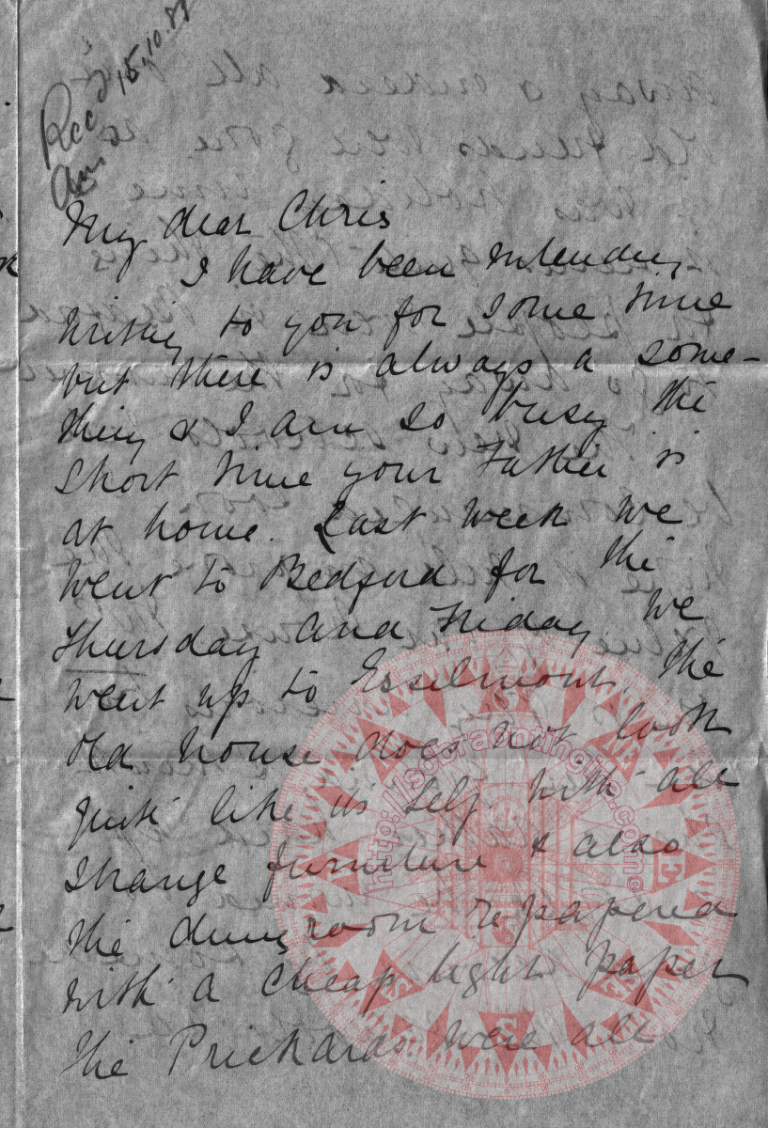 Recd 15.10.88
Ans
My dear Chris
I have been intending
writing to you for some time
but there is always a some-
thing & I am so busy the
short time your Father is
at home. Last week we
went to Bedford for the
Thursday and Friday we
went up to Esselmont. The
old house does not look
quite like its self with all
strange furniture & also
the dining room repapered
with a cheap light paper
the Prichards were all